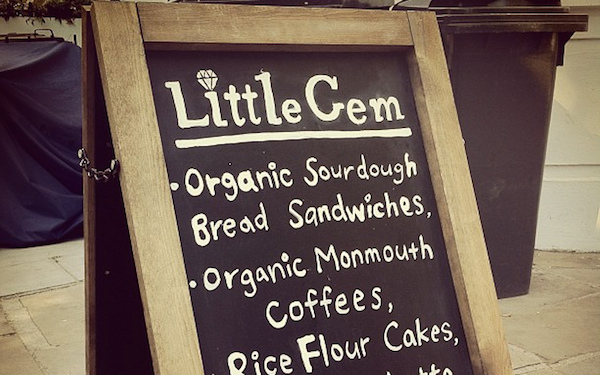 Little Gem
• Organic Sourdough
Bread Sandwiches,
• Organic Monmouth
Coffees,
Rice Flour Cakes,